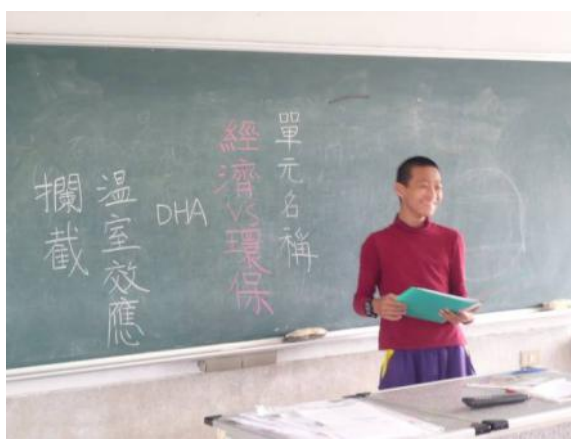 單元名稱
經濟VS環保
DHA
溫室效應
攔截